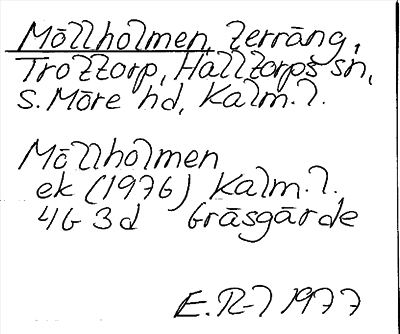 Möllholmen, terräng,
Trottorp, Halltorps sn,
S. Möre hd, Kalm. l.
Möllholmen
ek (1976) Kalm. l.
4G 3d Gräsgårde
E. R-l 1977